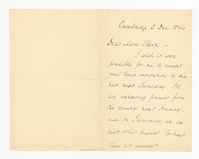 Cambridge, 2 Dec. 1896
Dear Mrs.
I wish it were
possible for me to accept
your kind invitation to din-
ner next Saturday. We
are expecting friends from
the
on Saturday we ex-
pect other friends to meet
them at dinner.